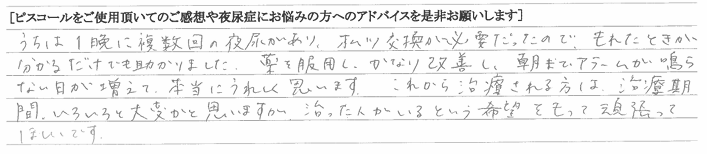 [ピスコールをご使用頂いてのご感想や夜尿症にお悩みの方へのアドバイスを是非お願いします]
うちは1晩に複数回の夜尿があり、オムツ交換が必要だったので、もれたときが
分かるだけでも助かりました。薬を服用し、かなり改善し、朝までアラームが鳴ら
ない日が増えて、本当にうれしく思います。これから治療される方は、治療期
間、いろいろと大変かと思いますが、治った人がいるという希望をもって頑張って
ほしいです。